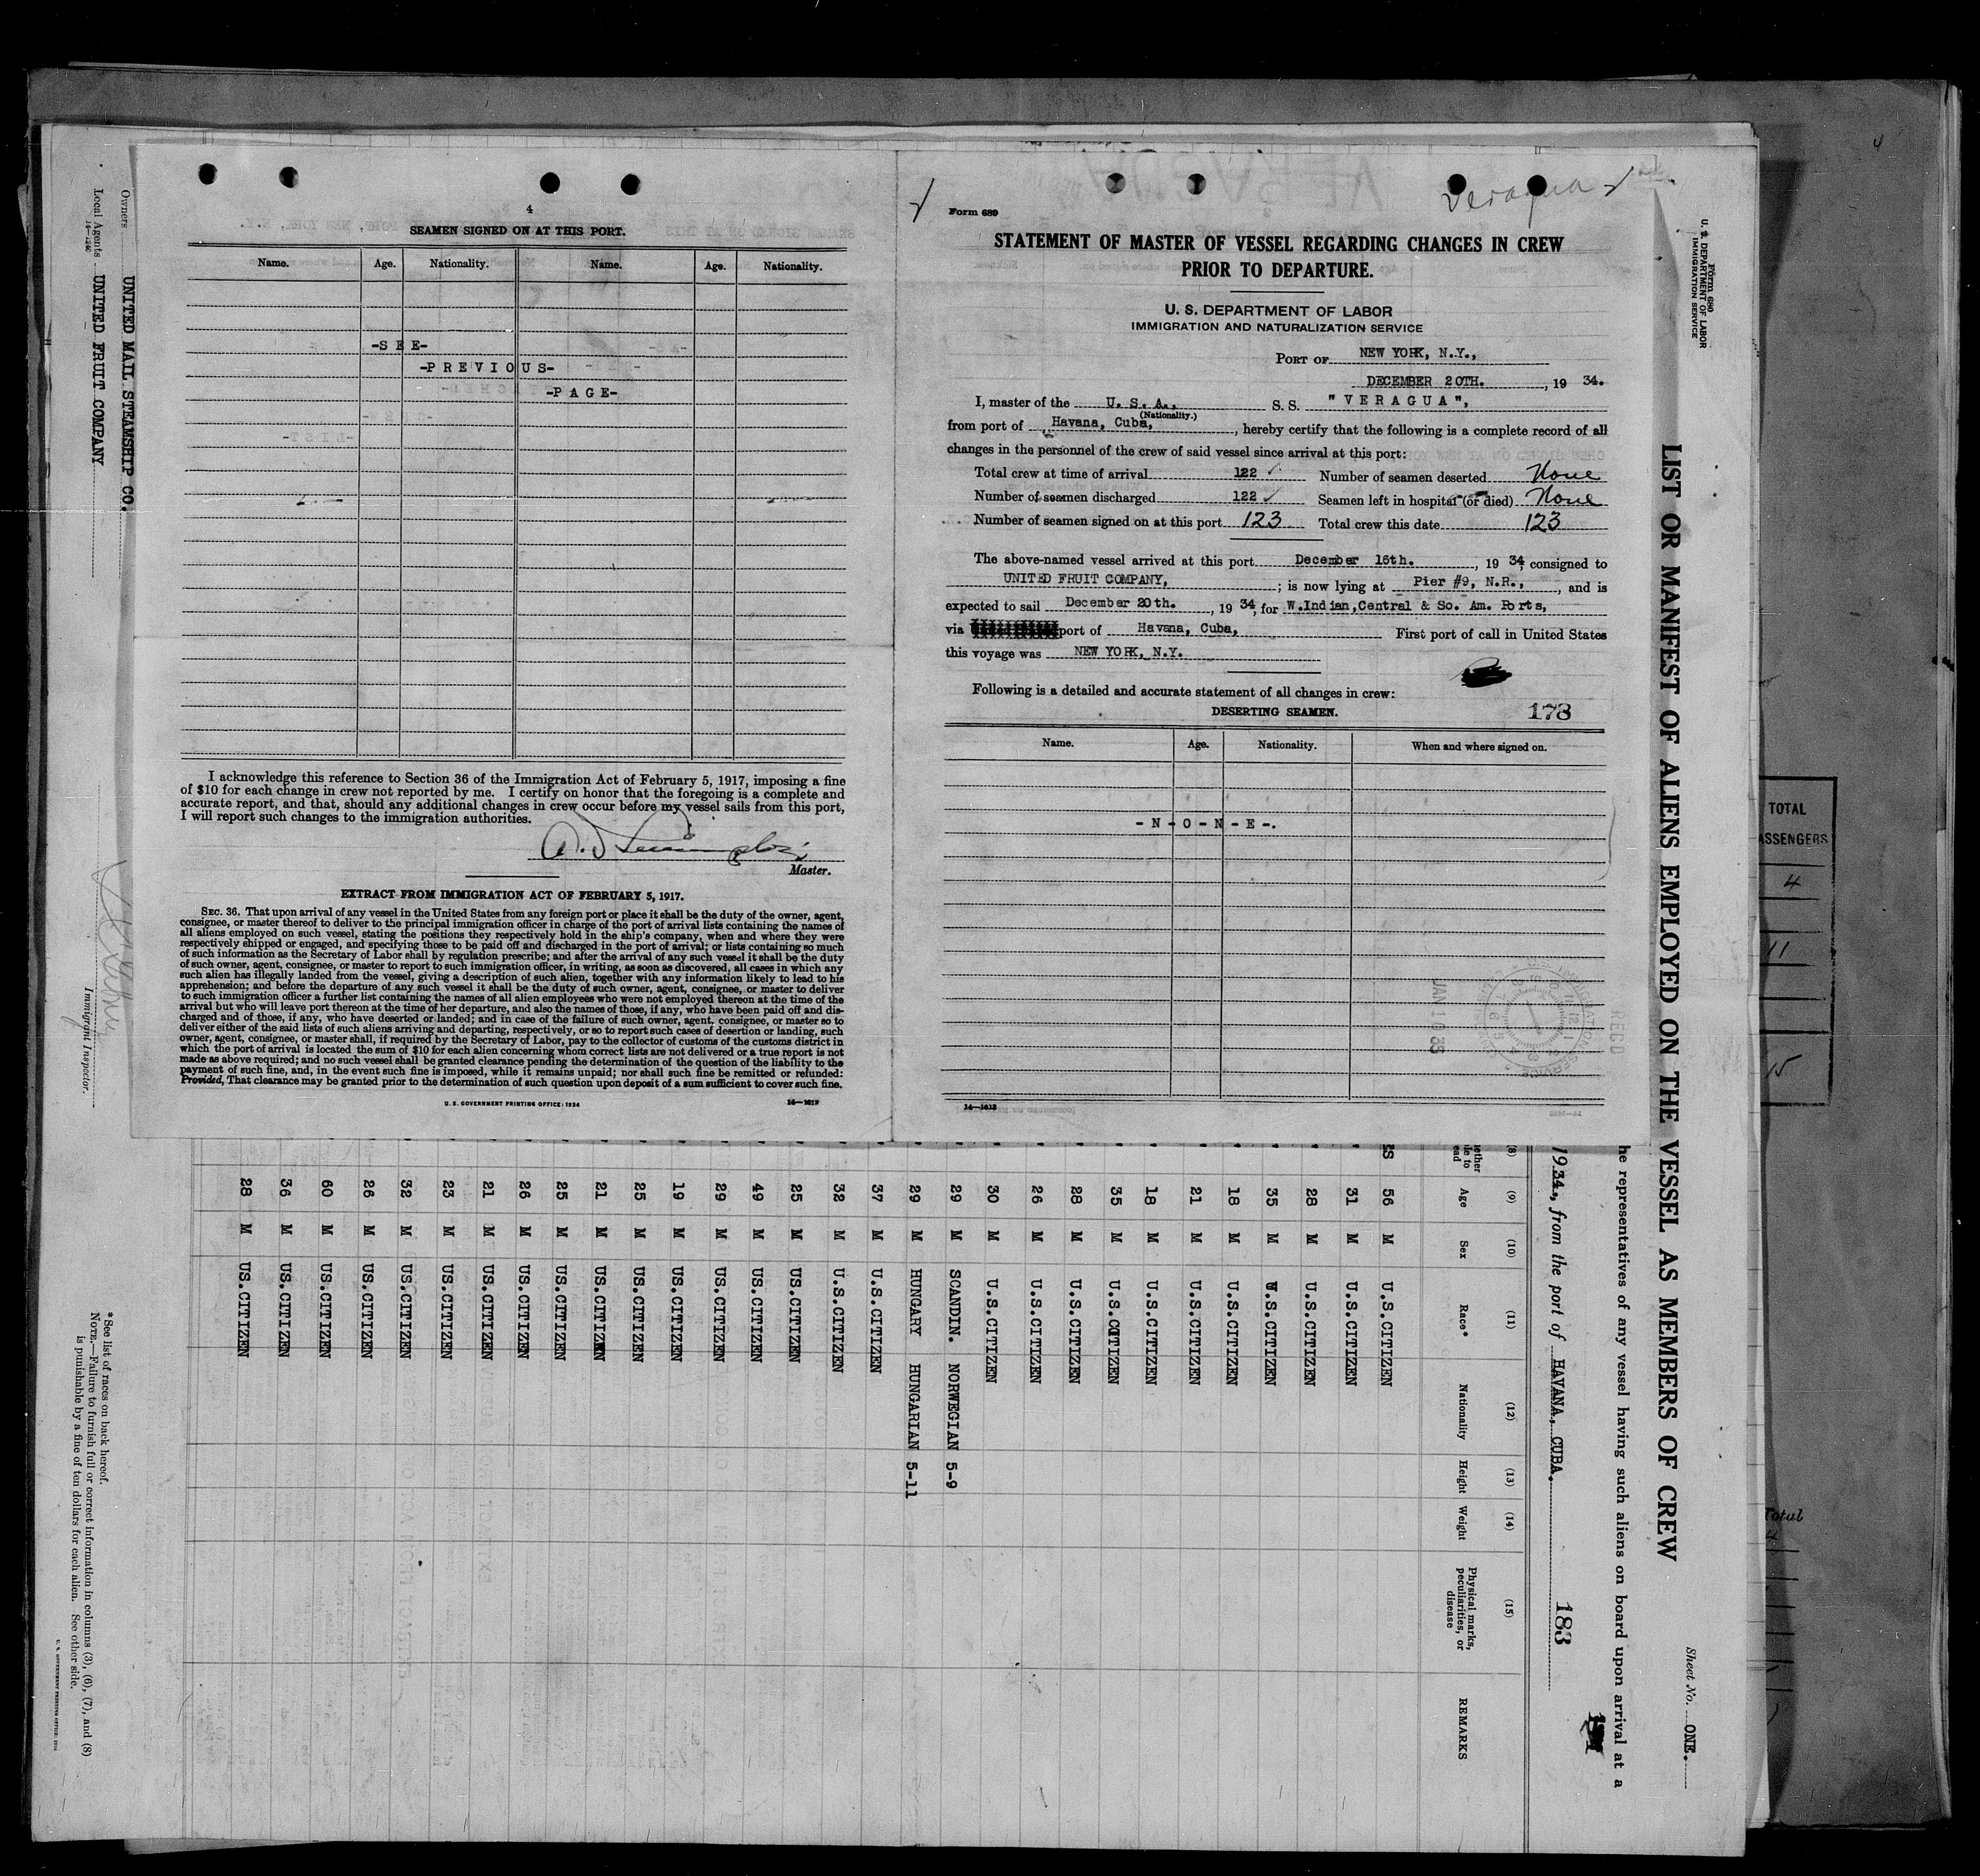 4
SEAMEN SIGNED ON AT THIS PORT.
Name. Age. Nationality. Name. Age. Nationality.
-S E E-
-P R E V I O U S-
-P A G E-
I acknowledge this reference to Section 36 of the Immigration Act of February 5, 1917, imposing a fine
of $10 for each change in crew not reported by me. I certify on honor that the foregoing is a complete and
accurate report, and that, should any additional changes in crew occur before my vessel sails from this port,
I will report such changes to the immigration authorities.
Master.
EXTRACT FROM IMMIGRATION ACT OF FEBRUARY 5, 1917.
SEC. 36. That upon arrival of any vessel in the United States from any foreign port or place it shall be the duty of the owner, agent,
consignee, or master thereof to deliver to the principal immigration officer in charge of the port of arrival lists containing the names of
all aliens employed on such vessel, stating the positions they respectively hold in the ship's company, when and where they were
respectively shipped or engaged, and specifying those to be paid off and discharged in the port of arrival; or lists containing so much
of such information as the Secretary of Labor shall by regulation prescribe; and after the arrival of any such vessel it shall be the duty
of such owner, agent, consignee, or master to report to such immigration officer, in writing, as soon as discovered, all cases in which any
such alien has illegally landed from the vessel, giving a description of such alien, together with any information likely to lead to his
apprehension; and before the departure of any such vessel it shall be the duty of such owner, agent, consignee, or master to deliver
to such immigration officer a further list containing the names of all alien employees who were not employed thereon at the time of the
arrival but who will leave port thereon at the time of her departure, and also the names of those, if any, who have been paid off and dis-
charged and of those, if any, who have deserted or landed; and in case of the failure of such owner, agent, consignee, or master so to
deliver either of the said lists of such aliens arriving and departing, respectively, or so to report such cases of desertion or landing, such
owner, agent, consignee, or master shall, if required by the Secretary of Labor, pay to the collector of customs of the customs district in
which the port of arrival is located the sum of $10 for each alien concerning whom correct lists are not delivered or a true report is not
made as above required; and no such vessel shall be granted clearance pending the determination of the question of the liability to the
payment of such fine, and, in the event such fine is imposed, while it remains unpaid; nor shall such fine be remitted or refunded:
Provided, That clearance may be granted prior to the determination of such question upon deposit of a sum sufficient to cover such fine.
U. S. GOVERNMENT PRINTING OFFICE: 1934 14—1613
Veragua
Form 689
STATEMENT OF MASTER OF VESSEL REGARDING CHANGES IN CREW
PRIOR TO DEPARTURE.
U. S. DEPARTMENT OF LABOR
IMMIGRATION AND NATURALIZATION SERVICE
PORT OF NEW YORK, N.Y.,
DECEMBER 20TH. , 19 34.
I, master of the U. S. A., S. S. " V E R A G U A ",
(Nationality.)
from port of Havana, Cuba, , hereby certify that the following is a complete record of all
changes in the personnel of the crew of said vessel since arrival at this port:
Total crew at time of arrival 122 ✓ Number of seamen deserted None
Number of seamen discharged 122 ✓ Seamen left in hospital (or died) None
Number of seamen signed on at this port 123 Total crew this date 123
The above-named vessel arrived at this port December 16th. , 19 34, consigned to
UNITED FRUIT COMPANY, ; is now lying at Pier #9, N.R., , and is
expected to sail December 20th. , 19 34, for W.Indian,Central & So. Am. Ports,
via port of Havana, Cuba, First port of call in United States
this voyage was NEW YORK, N.Y.
Following is a detailed and accurate statement of all changes in crew:
DESERTING SEAMEN. 178
Name. Age. Nationality. When and where signed on.
- N - O - N - E -.
REC'D
JAN 10 35
14—1613
Form 680
U. S. DEPARTMENT OF LABOR
IMMIGRATION SERVICE
LIST OR MANIFEST OF ALIENS EMPLOYED ON THE VESSEL AS MEMBERS OF CREW
Sheet No. ONE.
he representatives of any vessel having such aliens on board upon arrival at a
1934, from the port of HAVANA, CUBA. 183
(8) (9) (10) (11) (12) (13) (14) (15)
Age Sex Race* Nationality Height Weight Physical marks, peculiarities, or disease REMARKS
56 M U.S.CITIZEN
31 M U.S.CITIZEN
28 M U.S.CITIZEN
35 M U.S.CITIZEN
18 M U.S.CITIZEN
21 M U.S.CITIZEN
18 M U.S.CITIZEN
35 M U.S.CITIZEN
28 M U.S.CITIZEN
26 M U.S.CITIZEN
30 M U.S.CITIZEN
29 M SCANDIN. NORWEGIAN 5-9
29 M HUNGARY HUNGARIAN 5-11
37 M U.S.CITIZEN
32 M U.S.CITIZEN
25 M US.CITIZEN
49 M US.CITIZEN
29 M US.CITIZEN
19 M US.CITIZEN
25 M US.CITIZEN
21 M US.CITIZEN
25 M US.CITIZEN
26 M US.CITIZEN
21 M US.CITIZEN
23 M US.CITIZEN
32 M US.CITIZEN
26 M US.CITIZEN
60 M US.CITIZEN
36 M US.CITIZEN
28 M US.CITIZEN
Owners UNITED MAIL STEAMSHIP CO.
Local Agents UNITED FRUIT COMPANY
14—1240
Immigrant Inspector.
*See list of races on back hereof.
NOTE.—Failure to furnish full or correct information in columns (3), (6), (7), and (8)
is punishable by a fine of ten dollars for each alien. See other side.
TOTAL
ASSENGERS
4
11
15
Total
4